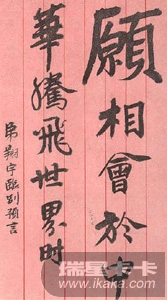 願相會於中
華騰飛世界时
弟翔宇臨别預言
瑞星卡卡
www.ikaka.com